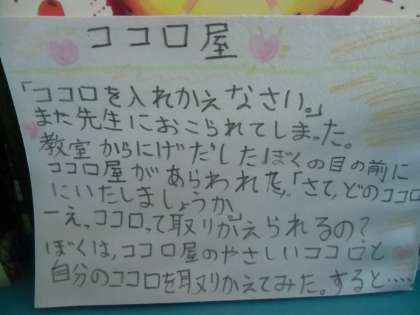 ココロ屋
「ココロを入れかえなさい。」
また先生におこられてしまった。
教室からにげだしたぼくの目の前に
ココロ屋があらわれた。「さて、どのココロ
にいたしましょうか。」
ーえ、ココロって取りかえられるの？
ぼくは、ココロ屋のやさしいココロと
自分のココロを取りかえてみた。すると‥‥